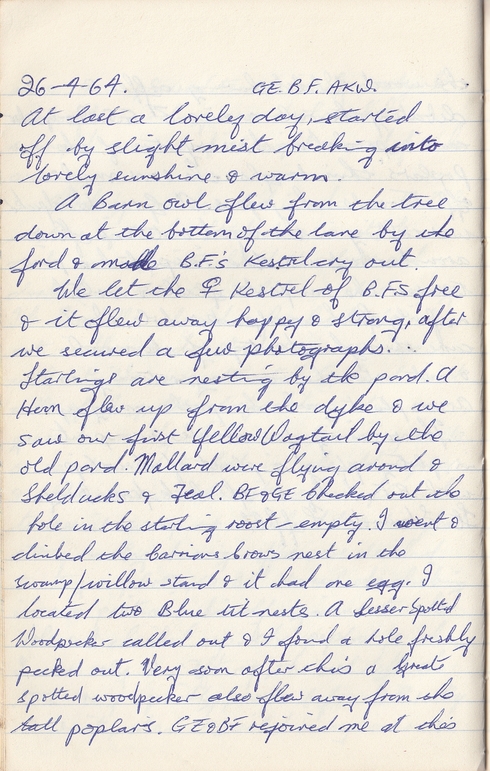 26-4-64. GE. B.F. AKW.
At last a lovely day, started
off by slight mist breaking into
lovely sunshine & warm.
A Barn owl flew from the tree
down at the bottom of the lane by the
ford & made B.F.'s Kestrel cry out.
We let the ♀ Kestrel of B.F.S free
& it flew away happy & strong, after
we secured a few photographs...
Starlings are nesting by the pond. A
Hern flew up from the dyke & we
saw our first Yellow Wagtail by the
old pond. Mallard were flying around &
Shelducks & Teal. BF&GE checked out the
hole in the starling roost - empty. I went &
climbed the Carrions Crows nest in the
swamp/willow stand & it had one egg. I
located two Blue tit nests. A Lesser Spotted
Woodpecker called out & I found a hole freshly
pecked out. Very soon after this a Great
spotted woodpecker also flew away from the
tall poplars. GE&BF rejoined me at this